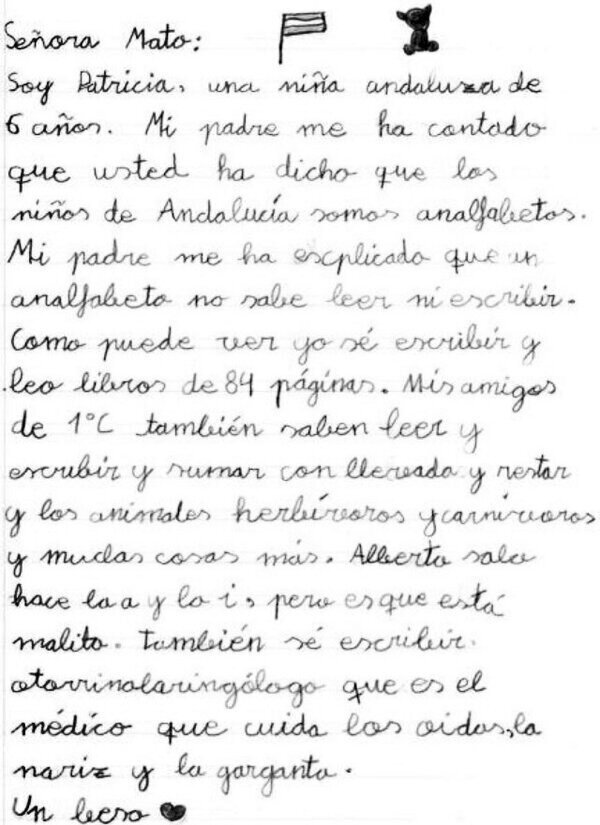 Señora Mato:
Soy Patricia, una niña andaluza de
6 años. Mi padre me ha contado
que usted ha dicho que los
niños de Andalucía somos analfabetos.
Mi padre me ha esplicado que un
analfabeto no sabe leer ni escribir.
Como puede ver yo sé escribir y
leo libros de 84 páginas. Mis amigos
de 1ºC también saben leer y
escribir y sumar con llevada y restar
y los animales herbívoros y carnívoros
y muchas cosas más. Alberto solo
hace la a y la i, pero es que está
malito. También sé escribir
otorrinolaringólogo que es el
médico que cuida los oidos, la
nariz y la garganta.
Un beso